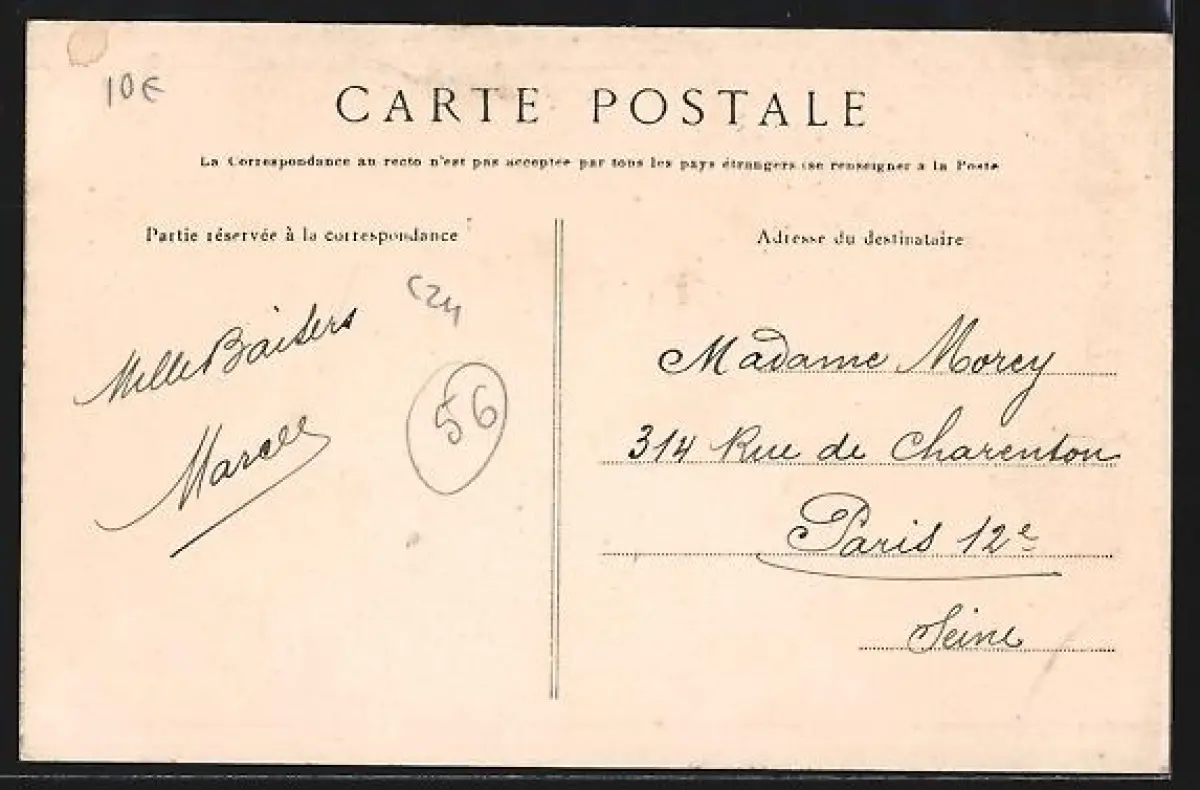 10€
CARTE POSTALE
La Correspondance au recto n'est pas acceptée par tous les pays étrangers (se renseigner à la Poste
Partie réservée à la correspondance
Adresse du destinataire
C24
Mille Baisers
Marcel
56
Madame Morey
314 Rue de Charenton
Paris 12e
Seine